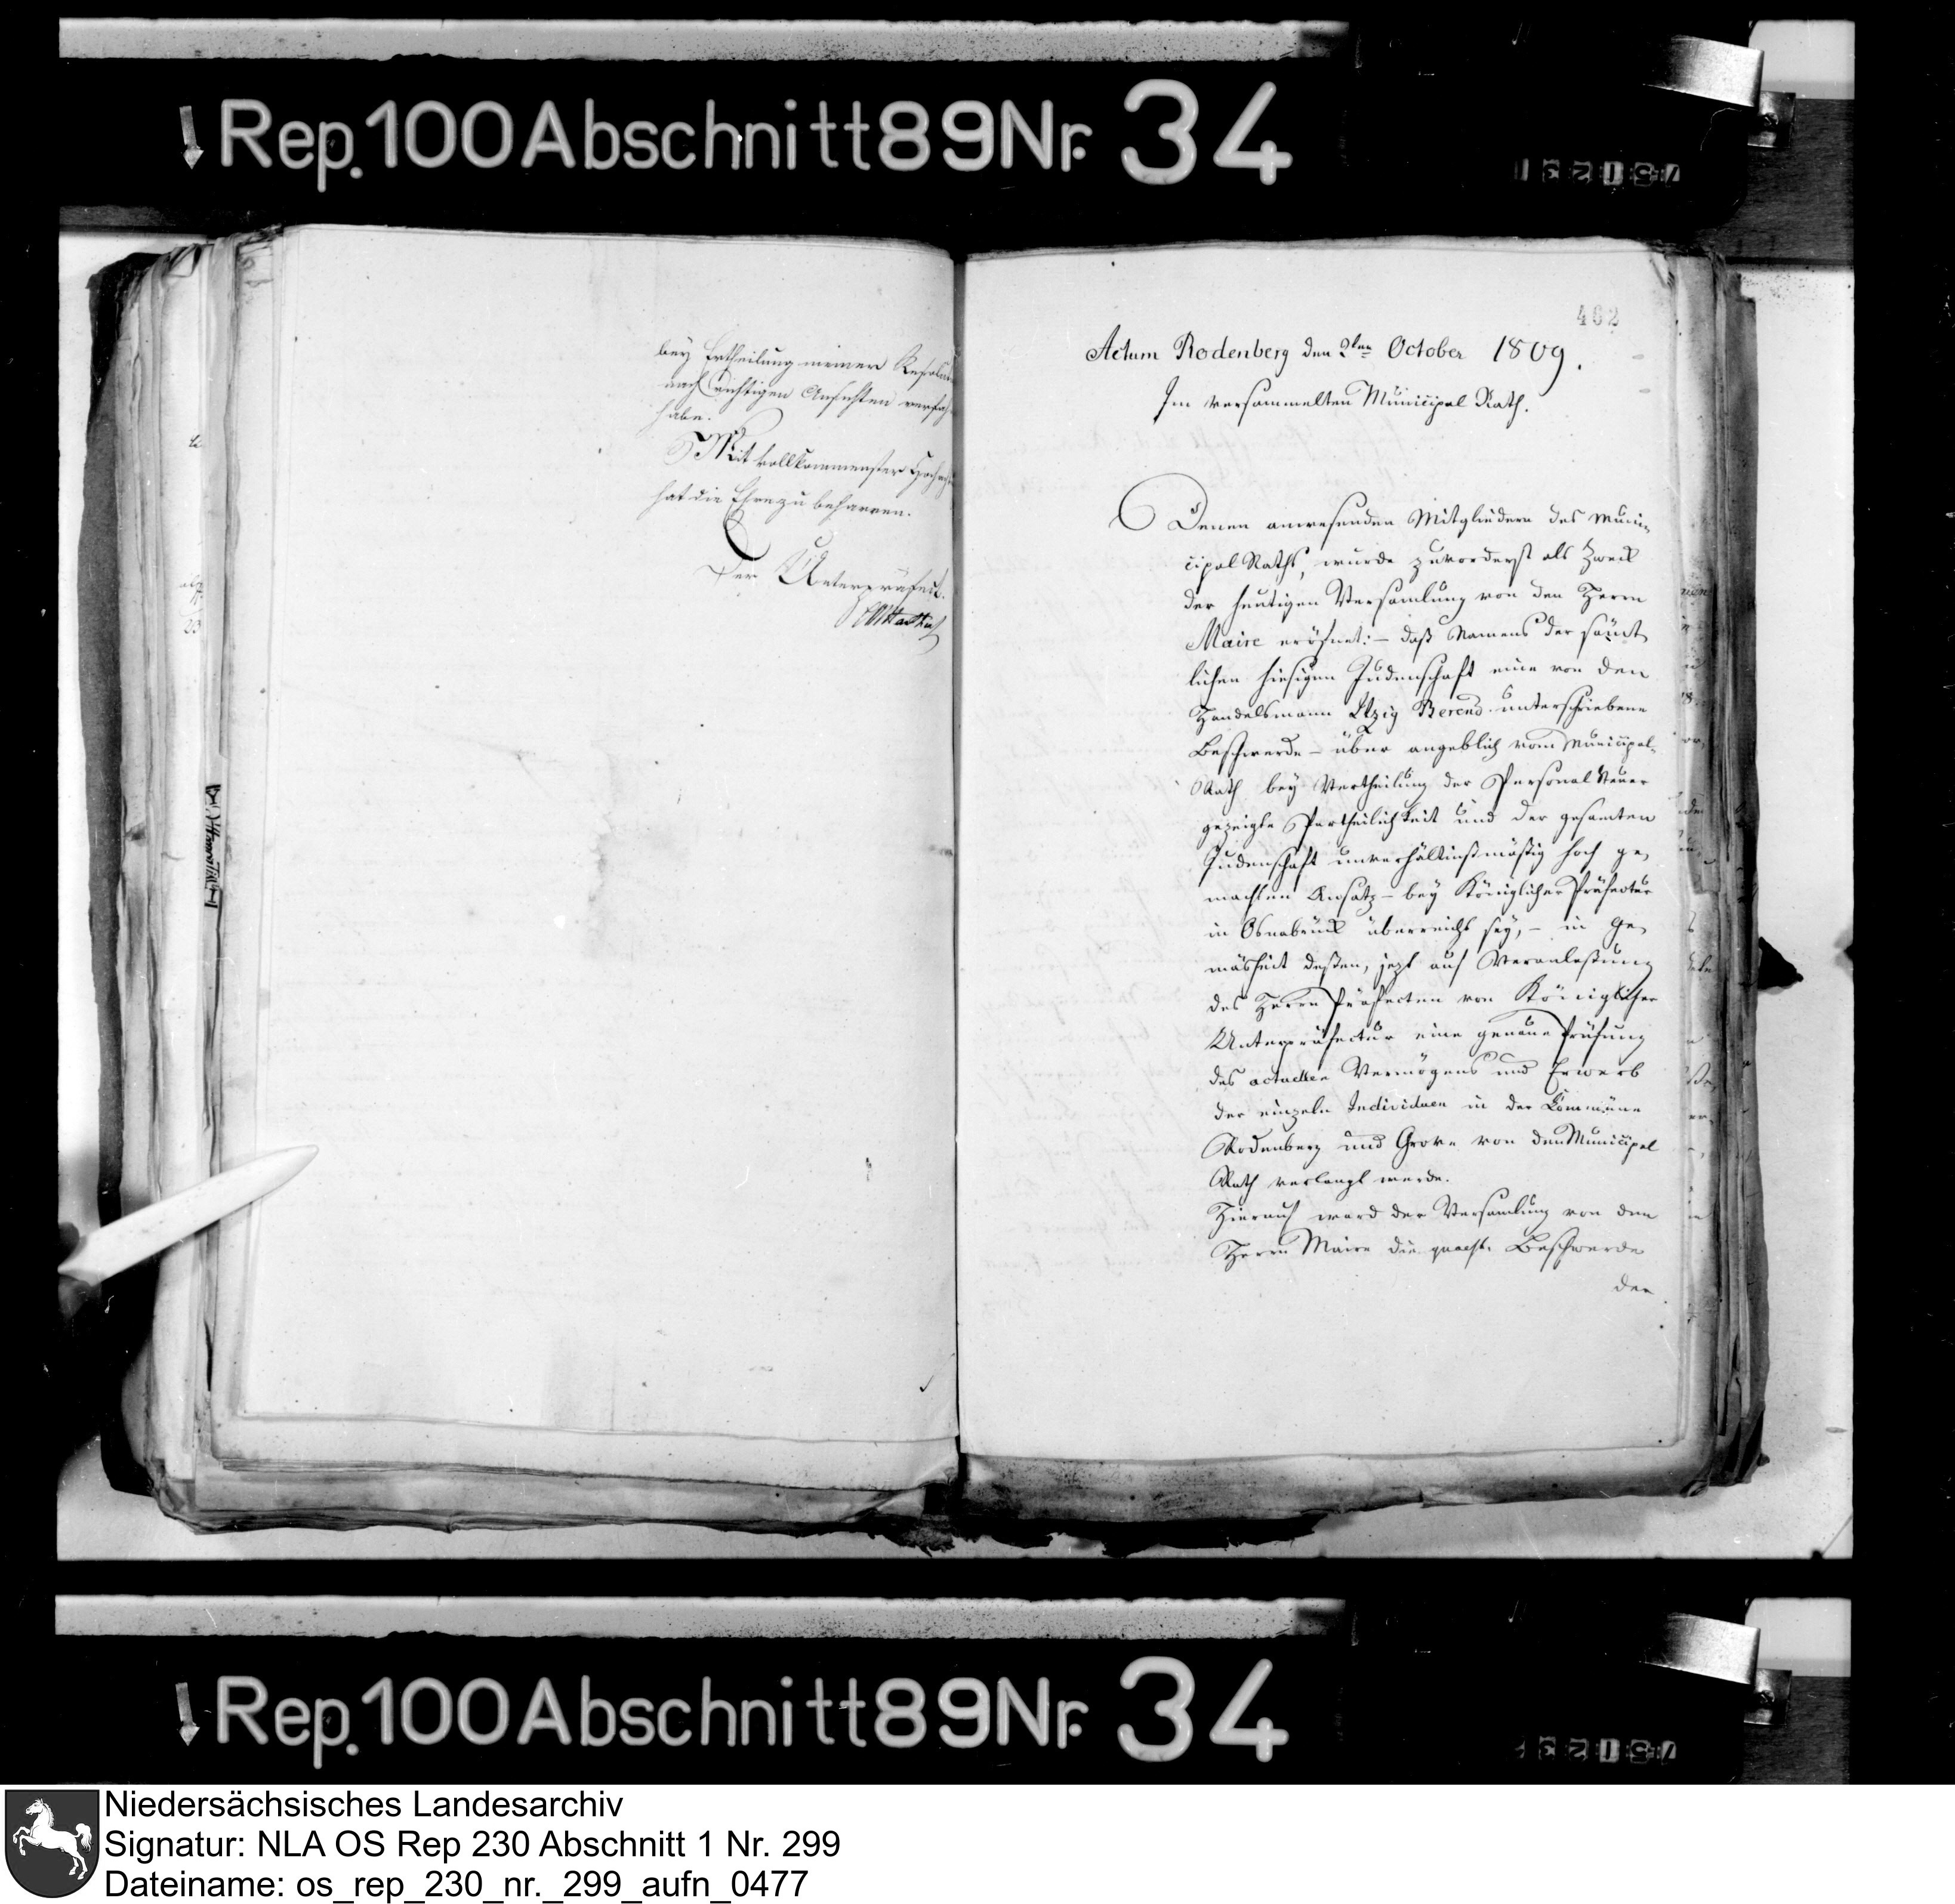 Rep. 100 Abschnitt 89 Nr. 34
bey Ertheilung meiner
nach richtigen Ansichten
habe.
Mit vollkommenster
hat die Ehre zu beharren.
Der Unterpräfect.
462
Actum Rodenberg den 2ten October 1809.
Im versammelten Municipal Rath.
Denen anwesenden Mitgliedern des Muni-
cipal Raths, wurde zuvorderst als Zweck
der heutigen Versamlung von den Herrn
Maire eröfnet: – daß Namens der sämt
lichen hiesigen Judenschaft eine von den
Handelsmann Itzig Berend unterschriebene
Beschwerde – über angeblich vom Municipal-
Rath bey Vertheilung der Personal Steuer
gezeigte Partheilichkeit und der gesamten
Judenschaft unverhältnißmäßig hoch ge-
machten Ansatz – bey Königlicher Präfectur
in Osnabrück überreicht sey, – in Ge-
mäsheit deßen, jezt auf Veranlaßung
des Herrn Präfecten von Königlicher
Unterpräfectur eine genaue Prüfung
des actuellen Vermögens und Erwerb
der einzeln Individuen in der Commüne
Rodenberg und Grove von den Municipal
Rath verlangt werde.
Hierauf ward der Versamlung von dem
Herrn Maire die quaest. Beschwerde
der
Rep. 100 Abschnitt 89 Nr. 34
Niedersächsisches Landesarchiv
Signatur: NLA OS Rep 230 Abschnitt 1 Nr. 299
Dateiname: os_rep_230_nr._299_aufn_0477